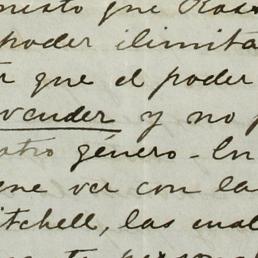 nesto que Rosa
poder ilimita
que el poder
vender y no p
otro género - En
ene ver con la
itchell, las cual